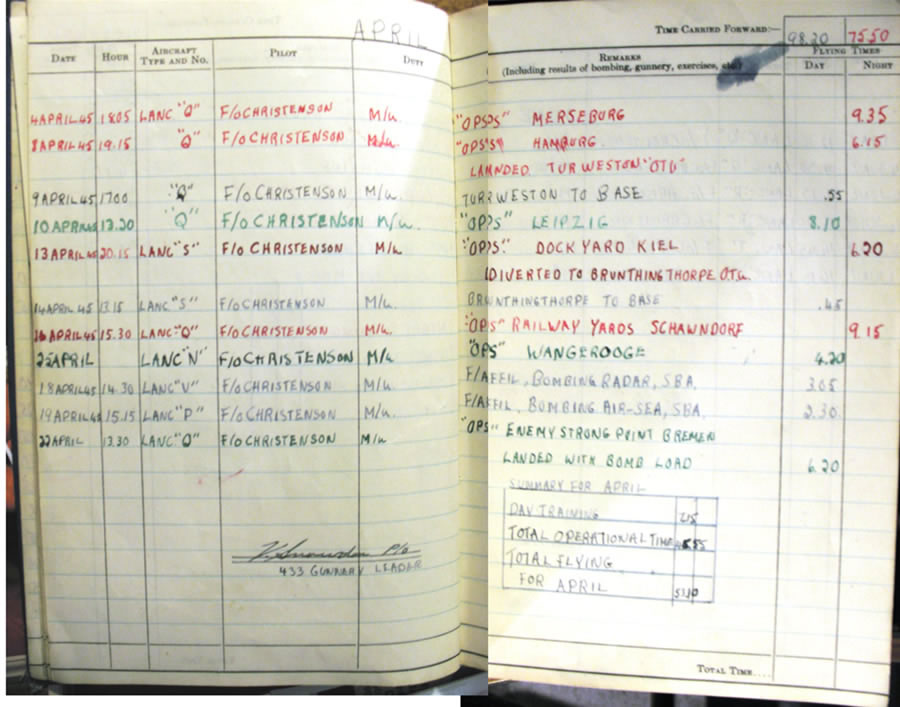 APRIL
TIME CARRIED FORWARD:— 98.20 75.50
DATE HOUR AIRCRAFT TYPE AND NO. PILOT DUTY REMARKS (Including results of bombing, gunnery, exercises, etc.) FLYING TIMES DAY NIGHT
4 APRIL 45 18.05 LANC "Q" F/O CHRISTENSON M/U. "OPS" MERSEBURG 9.35
8 APRIL 45 19.15 "Q" F/O CHRISTENSON "OPS" HAMBURG 6.15
LAMNDED TUR WESTON "OTU"
9 APRIL 45 1700 "Q" F/O CHRISTENSON M/U. TURRWESTON TO BASE .55
10 APRIL 45 13.20 "Q" F/O CHRISTENSON M/U. "OPPS" LEIPZIG 8.10
13 APRIL 45 20.15 LANC "S" F/O CHRISTENSON M/U. "OPPS." DOCKYARD KIEL 6.20
(DIVERTED TO BRUNTHINGTHORPE O.T.U.
14 APRIL 45 13.15 LANC "S" F/O CHRISTENSON M/U. BRUNTHINGTHORPE TO BASE .45
16 APRIL 45 15.30 LANC "Q" F/O CHRISTENSON M/U. "OPS" RAILWAY YARDS SCHAWNDORF 9.15
25 APRIL LANC "N" F/O CHRISTENSON M/U "OPS" WANGEROOGE 4.20
18 APRIL 45 14.30 LANC "V" F/O CHRISTENSON M/U. F/AFFIL, BOMBING RADAR, SBA. 3.05
19 APRIL 45 15.15 LANC "P" F/O CHRISTENSON M/U. F/AFFIL, BOMBING AIR-SEA, SBA. 2.30
22 APRIL 13.30 LANC "Q" F/O CHRISTENSON M/U "OPS" ENEMY STRONG POINT BREMEN
LANDED WITH BOMB LOAD 6.20
SUMMARY FOR APRIL
DAY TRAINING 7.15
TOTAL OPERATIONAL TIME
TOTAL FLYING
FOR APRIL
P/O
433 GUNNERY LEADER
TOTAL TIME....